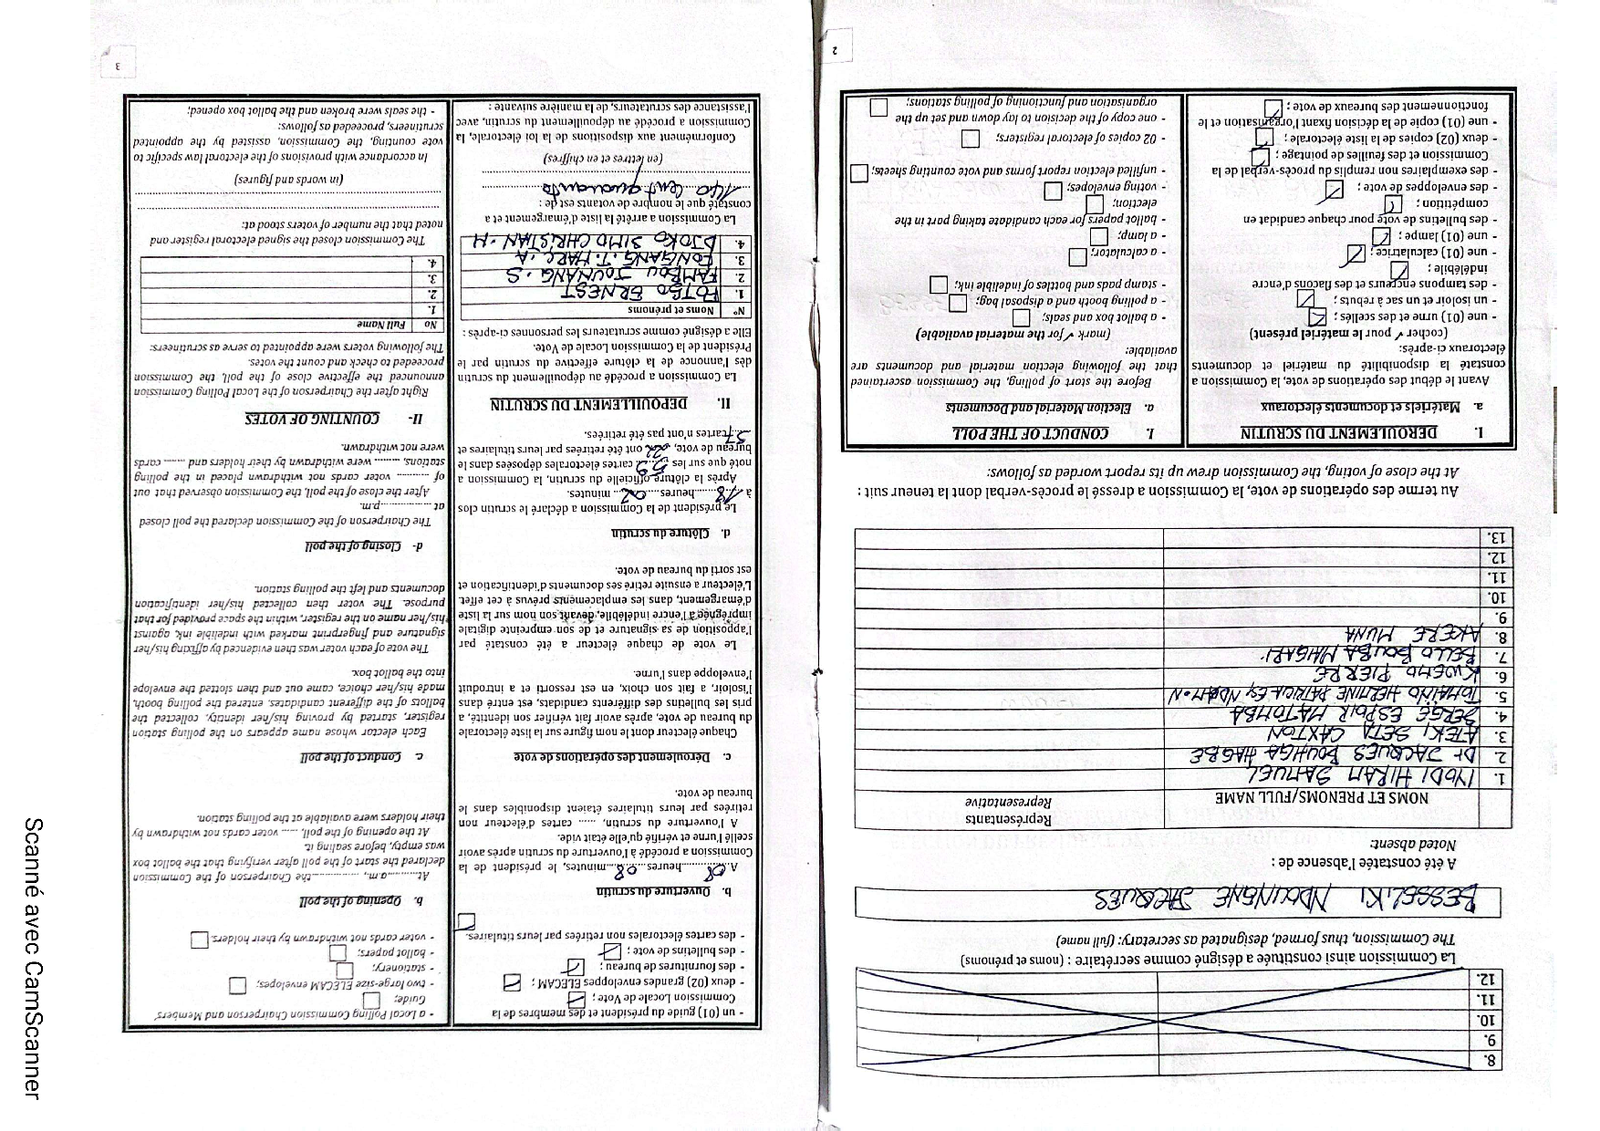 8.
9.
10.
11.
12.
La Commission ainsi constituée a désigné comme secrétaire : (noms et prénoms)
The Commission, thus formed, designated as secretary: (full name)
BESSELIKI NDOUNGNE JACQUES
A été constatée l'absence de :
Noted absent:
NOMS ET PRENOMS/FULL NAME
Représentants
Representative
1. IYODI HIRAM SAMUEL
2. Dr JACQUES BOUHGA HAGBE
3. ATEKI SETA CAXTON
4. SERGE ESPOIR MATOMBA
5. TOMAINO HERMINE PATRICIA Eq NDAM.N
6. KWEMO PIERRE
7. BELLO BOUBA MAIGARI
8. AKERE MUNA
9.
10.
11.
12.
13.
Au terme des opérations de vote, la Commission a dressé le procès-verbal dont la teneur suit :
At the close of voting, the Commission drew up its report worded as follows:
I. DEROULEMENT DU SCRUTIN
a. Matériels et documents électoraux
Avant le début des opérations de vote, la Commission a
constaté la disponibilité du matériel et documents
électoraux ci-après:
(cocher ✓ pour le matériel présent)
- une (01) urne et des scellés ;
- un isoloir et un sac à rebuts ;
- des tampons encreurs et des flacons d'encre
indélébile ;
- une (01) calculatrice ;
- une (01) lampe ;
- des bulletins de vote pour chaque candidat en
compétition ;
- des enveloppes de vote ;
- des exemplaires non remplis du procès-verbal de la
Commission et des feuilles de pointage ;
- deux (02) copies de la liste électorale ;
- une (01) copie de la décision fixant l'organisation et le
fonctionnement des bureaux de vote ;
I. CONDUCT OF THE POLL
a. Election Material and Documents
Before the start of polling, the Commission ascertained
that the following election material and documents are
available:
(mark ✓ for the material available)
- a ballot box and seals;
- a polling booth and a disposal bag;
- stamp pads and bottles of indelible ink;
- a calculator;
- a lamp;
- ballot papers for each candidate taking part in the
election;
- voting envelopes;
- unfilled election report forms and vote counting sheets;
- 02 copies of electoral registers;
- one copy of the decision to lay down and set up the
organisation and functioning of polling stations;
2
- un (01) guide du président et des membres de la
Commission Locale de Vote ;
- deux (02) grandes enveloppes ELECAM ;
- des fournitures de bureau ;
- des bulletins de vote ;
- des cartes électorales non retirées par leurs titulaires.
b. Ouverture du scrutin
A 08 heures 08 minutes, le président de la
Commission a procédé à l'ouverture du scrutin après avoir
scellé l'urne et vérifié qu'elle était vide.
A l'ouverture du scrutin, ...... cartes d'électeur non
retirées par leurs titulaires étaient disponibles dans le
bureau de vote.
c. Déroulement des opérations de vote
Chaque électeur dont le nom figure sur la liste électorale
du bureau de vote, après avoir fait vérifier son identité, a
pris les bulletins des différents candidats, est entré dans
l'isoloir, a fait son choix, en est ressorti et a introduit
l'enveloppe dans l'urne.
Le vote de chaque électeur a été constaté par
l'apposition de sa signature et de son empreinte digitale
imprégnée à l'encre indélébile, devant son nom sur la liste
d'émargement, dans les emplacements prévus à cet effet.
L'électeur a ensuite retiré ses documents d'identification et
est sorti du bureau de vote.
d. Clôture du scrutin
Le président de la Commission a déclaré le scrutin clos
à 18 heures 02 minutes.
Après la clôture officielle du scrutin, la Commission a
noté que sur les 59 cartes électorales déposées dans le
bureau de vote, 22 ont été retirées par leurs titulaires et
37 cartes n'ont pas été retirées.
II. DEPOUILLEMENT DU SCRUTIN
La Commission a procédé au dépouillement du scrutin
dès l'annonce de la clôture effective du scrutin par le
Président de la Commission Locale de Vote.
Elle a désigné comme scrutateurs les personnes ci-après :
N° Noms et prénoms
1. FOTSO ERNEST
2. FAMBOU JOUNANG . S
3. FONGANG . T. MARC . A
4. DJOKO SIMO CHRISTIAN . H
La Commission a arrêté la liste d'émargement et a
constaté que le nombre de votants est de :
140 Cent quarante
(en lettres et en chiffres)
Conformément aux dispositions de la loi électorale, la
Commission a procédé au dépouillement du scrutin, avec
l'assistance des scrutateurs, de la manière suivante :
- a Local Polling Commission Chairperson and Members'
Guide;
- two large-size ELECAM envelopes;
- stationery;
- ballot papers;
- voter cards not withdrawn by their holders.
b. Opening of the poll
At..........a.m., ..............the Chairperson of the Commission
declared the start of the poll after verifying that the ballot box
was empty, before sealing it.
At the opening of the poll, ...... voter cards not withdrawn by
their holders were available at the polling station.
c. Conduct of the poll
Each elector whose name appears on the polling station
register, started by proving his/her identity, collected the
ballots of the different candidates, entered the polling booth,
made his/her choice, came out and then slotted the envelope
into the ballot box.
The vote of each voter was then evidenced by affixing his/her
signature and fingerprint marked with indelible ink, against
his/her name on the register, within the space provided for that
purpose. The voter then collected his/her identification
documents and left the polling station.
d- Closing of the poll
The Chairperson of the Commission declared the poll closed
at ..................p.m.
After the close of the poll, the Commission observed that out
of .......... voter cards not withdrawn placed in the polling
stations, ........ were withdrawn by their holders and ....... cards
were not withdrawn.
II- COUNTING OF VOTES
Right after the Chairperson of the Local Polling Commission
announced the effective close of the poll, the Commission
proceeded to check and count the votes.
The following voters were appointed to serve as scrutineers:
No Full Name
1.
2.
3.
4.
The Commission closed the signed electoral register and
noted that the number of voters stood at:
(in words and figures)
In accordance with provisions of the electoral law specific to
vote counting, the Commission, assisted by the appointed
scrutineers, proceeded as follows:
- the seals were broken and the ballot box opened;
3
Scanné avec CamScanner